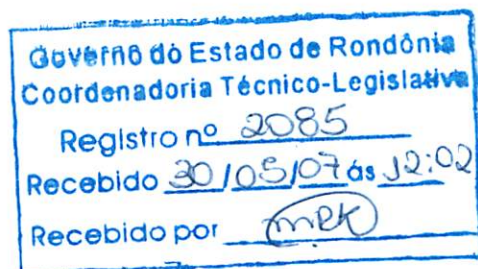 Governo do Estado de Rondônia
Coordenadoria Técnico-Legislativa
Registro nº 2085
Recebido 30/05/07 às 12:02
Recebido por